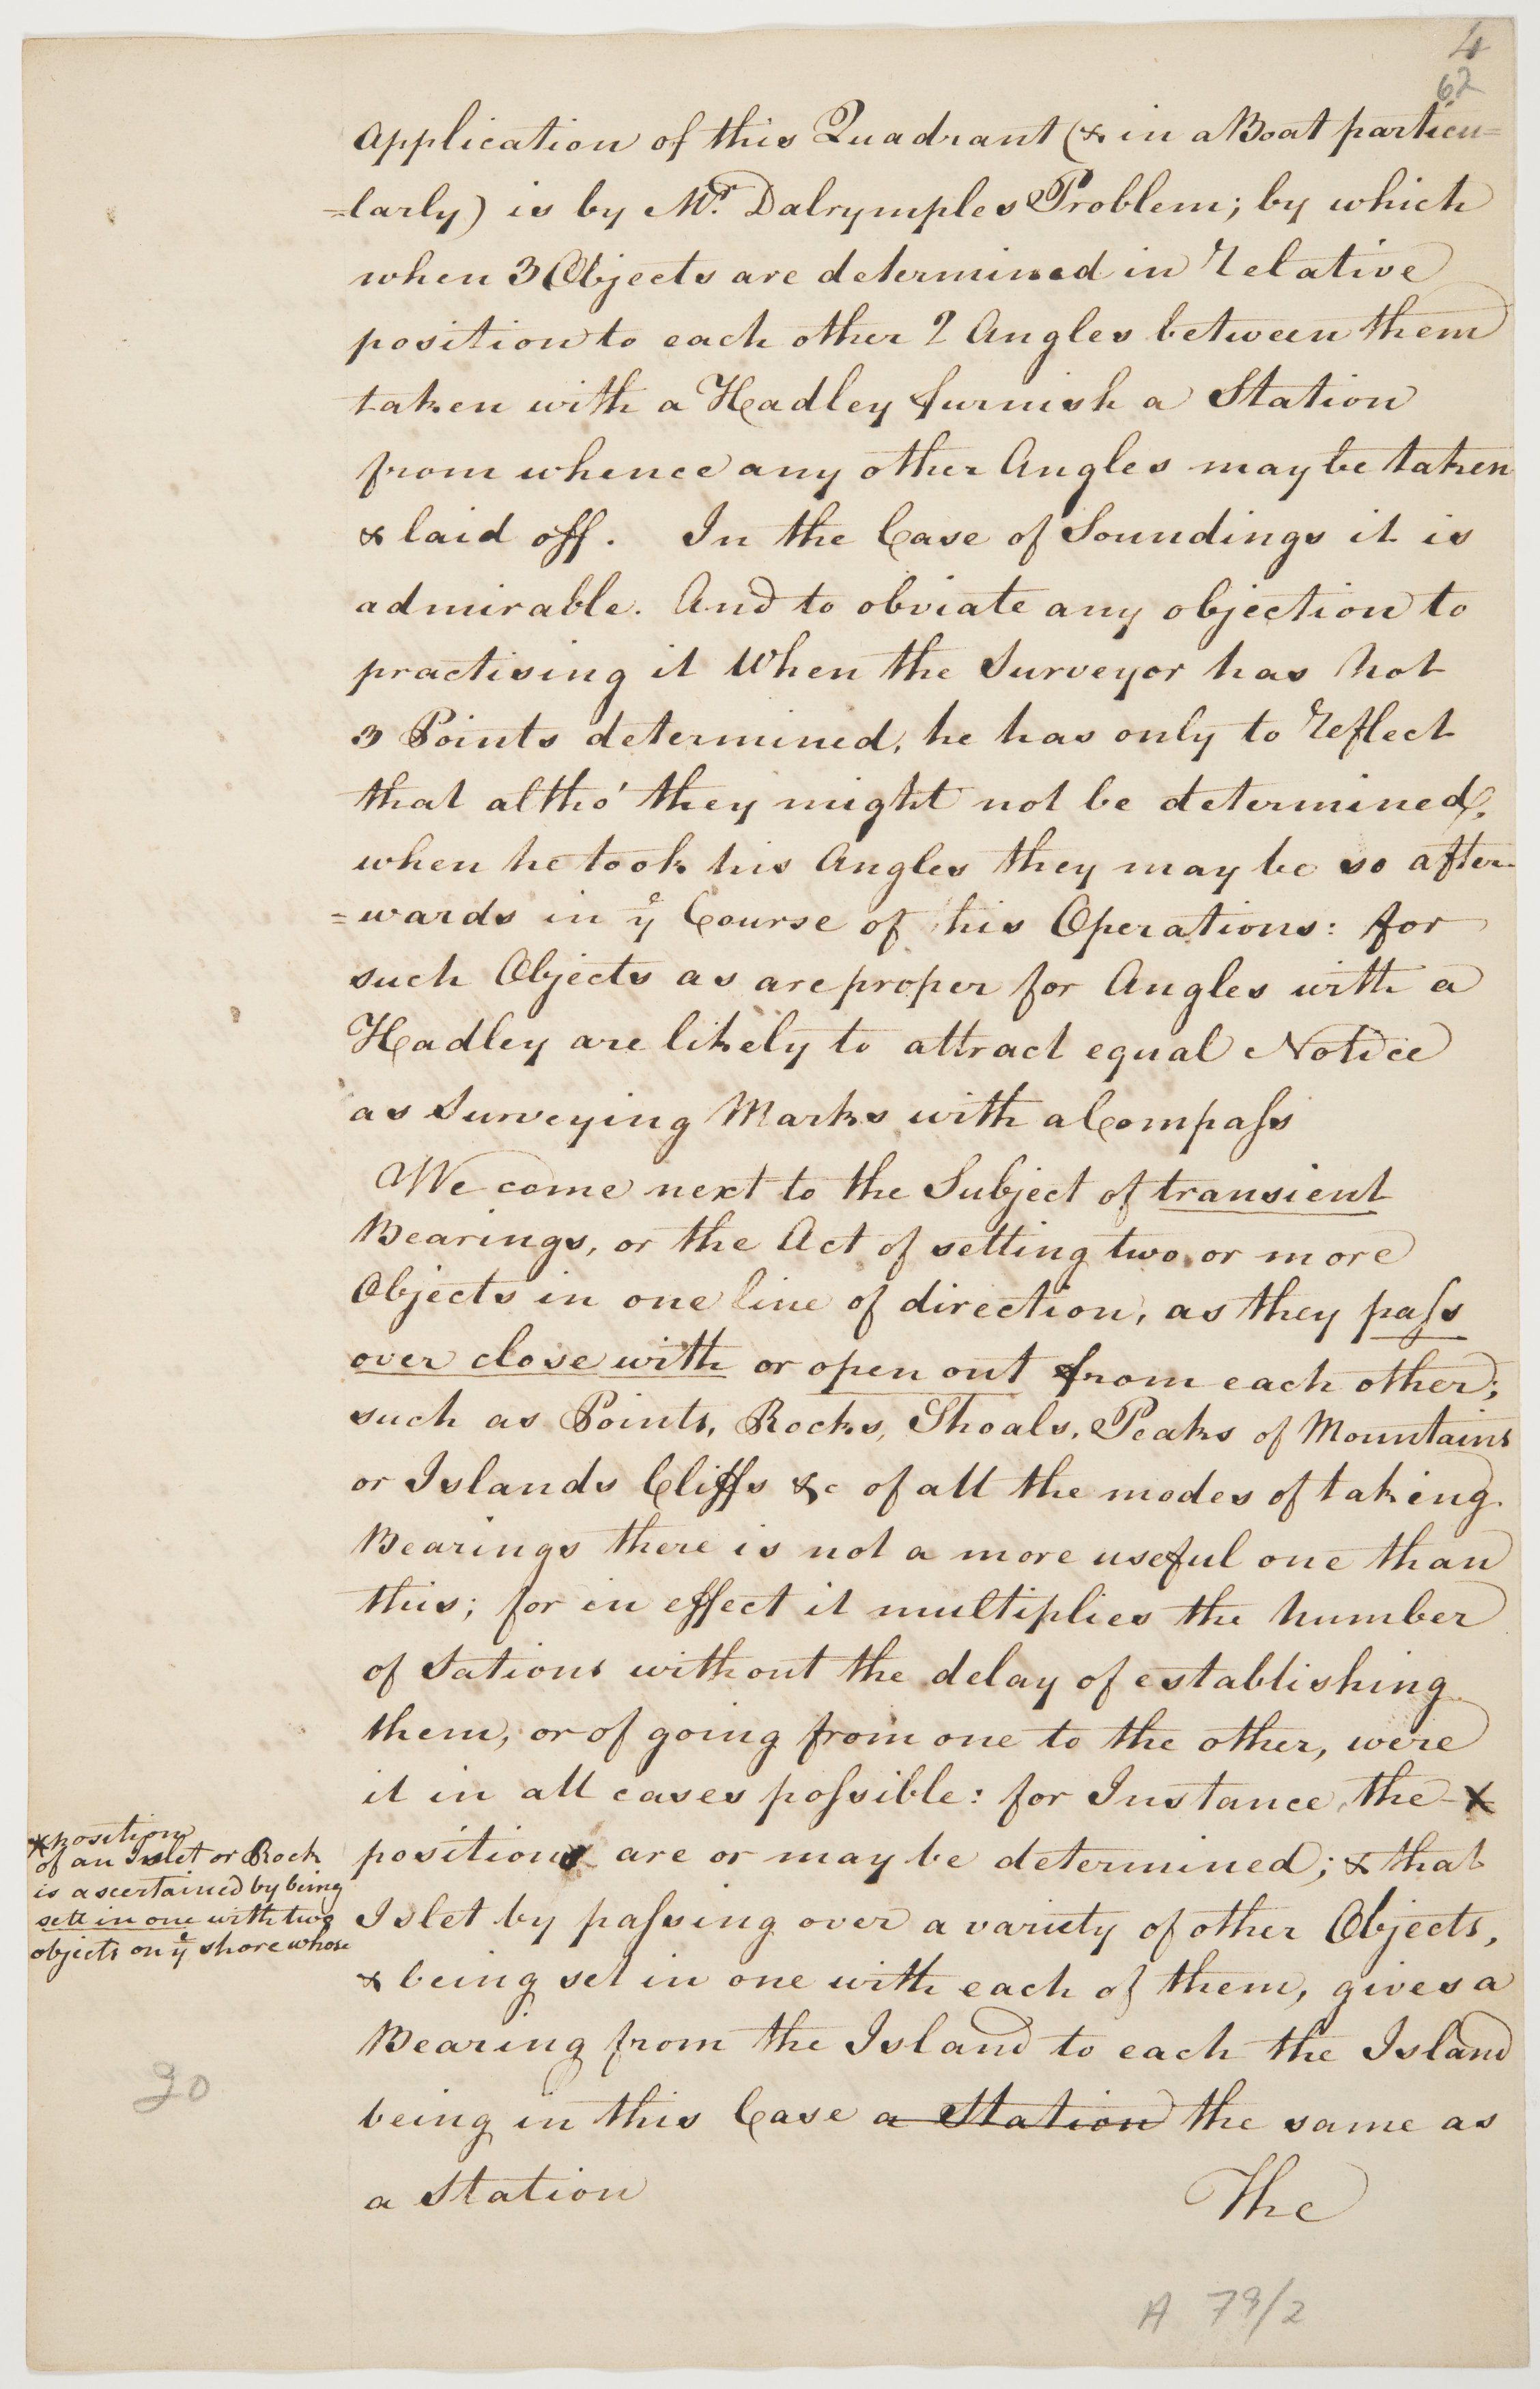 4
62
Application of this Quadrant (& in a Boat particu=
=larly) is by Mr. Dalrymples Problem; by which
when 3 Objects are determined in relative
position to each other 2 Angles between them
taken with a Hadley furnish a Station
from whence any other Angles may be taken
& laid off. In the Case of Soundings it is
admirable. And to obviate any objection to
practising it When the Surveyor has not
3 Points determined, he has only to reflect
that altho' they might not be determined,
when he took his Angles they may be so after=
=wards in ye Course of his Operations: for
such Objects as are proper for Angles with a
Hadley are likely to attract equal Notice
as Surveying Marks with a Compaſs
We come next to the Subject of transient
Bearings, or the Act of setting two or more
Objects in one line of direction, as they paſs
over close with or open out from each other;
such as Points, Rocks, Shoals, Peaks of Mountains
or Islands Cliffs &c of all the modes of taking
Bearings there is not a more useful one than
this; for in effect it multiplies the number
of Sations without the delay of establishing
them, or of going from one to the other, were
it in all cases poſsible: for Instance, the X
positions are or may be determined; & that
Islet by paſsing over a variety of other Objects,
& being set in one with each of them, gives a
Bearing from the Island to each the Island
being in this Case a Station the same as
a Station
The
X position
of an Islet or Rock
is ascertained by being
sett in one with two
objects on ye shore whose
20
A 79/2